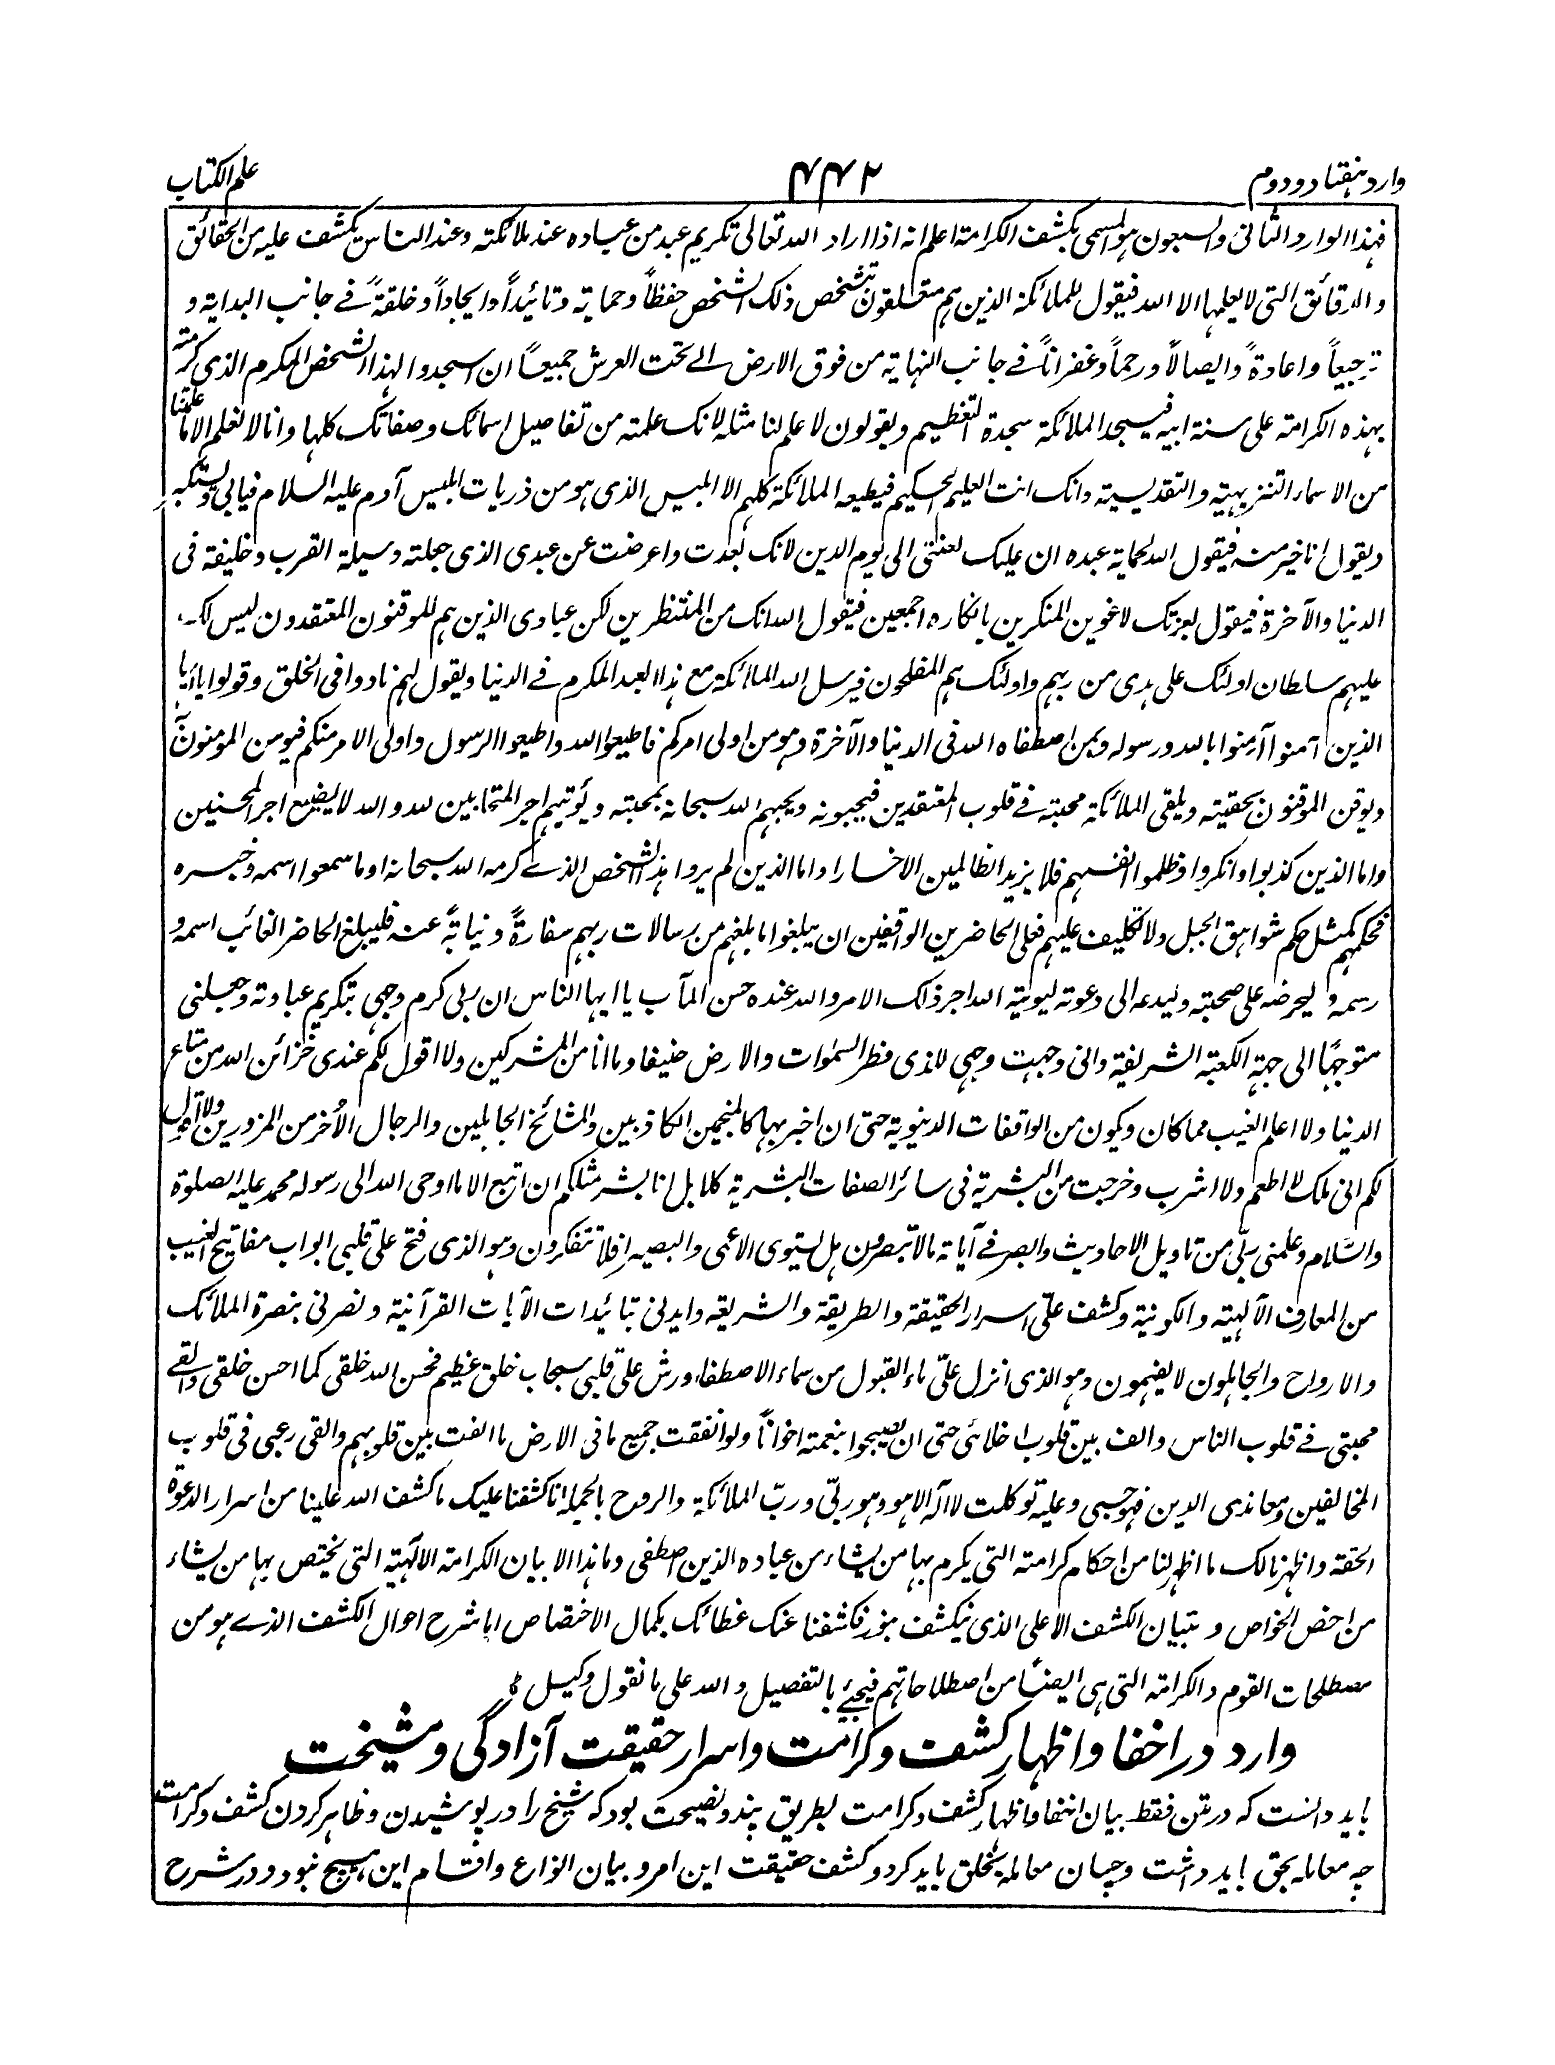 وارد هفتاد و دوم ۴۴۲ علم الکتاب
فهذا الوارد الثانی والسبعون هو المسمی بکشف الکرامة اعلم انه اذا اراد الله تعالی تکریم عبد من عباده عند ملائکته وعند الناس یکشف علیه من الحقائق
والدقائق التی لا یعلمها الا الله فیقول للملائکة الذین هم متعلقون بتشخص ذلک الشخص حفظاً وحمایة وتائیداً وایجاداً وخلقةً فی جانب البدایة و
ترجیعاً واعادةً وایصالاً ورحماً وغفراناً فی جانب النهایة من فوق الارض الی تحت العرش جمیعاً ان اسجدوا لهذا الشخص المکرم الذی کرمته
بهذه الکرامة علی سنة ابیه فیسجد الملائکة سجدة التعظیم ویقولون لا علم لنا مثله لانک علمته من تفاصیل اسمائک وصفاتک کلها وانا لا نعلم الا ما علمتنا
من الاسماء التنزیهیة والتقدیسیة وانک انت العلیم الحکیم فیطیعه الملائکة کلهم الا ابلیس الذی هو من ذریات ابلیس آدم علیه السلام فیابی ویستکبر
ویقول انا خیر منه فیقول الله لحمایة عبده ان علیک لعنتی الی یوم الدین لانک بعدت واعرضت عن عبدی الذی جعلته وسیلة القرب وخلیفة فی
الدنیا والآخرة فیقول بعزتک لاغوین المنکرین بانکاره اجمعین فیقول الله انک من المنتظرین لکن عبادی الذین هم الموقنون المعتقدون لیس لک
علیهم سلطان اولئک علی هدی من ربهم واولئک هم المفلحون فیرسل الله الملائکة مع هذا العبد المکرم فی الدنیا ویقول لهم نادوا فی الخلق وقولوا یا ایها
الذین آمنوا آمنوا بالله ورسوله وبمن اصطفاه الله فی الدنیا والآخرة وهو من اولی امرکم فاطیعوا الله واطیعوا الرسول واولی الامر منکم فیومن المومنون
ویوقن الموقنون بحقیته ویلقی الملائکة محبته فی قلوب المعتقدین فیحبونه ویحبهم الله سبحانه بمحبته ویؤتیهم اجر المتحابین لله والله لا یضیع اجر المحسنین
واما الذین کذبوا وانکروا وظلموا انفسهم فلا یزید الظالمین الا خسارا واما الذین لم یروا هذا الشخص الذی کرمه الله سبحانه او ما سمعوا اسمه وخبره
فحکمهم کمثل حکم شواهق الجبل ولا تکلیف علیهم فعلی الحاضرین الواقفین ان یبلغوا ما بلغهم من رسالات ربهم سفارةً ونیابةً عنه فلیبلغ الحاضر الغائب اسمه و
رسمه ولیحرضه علی صحبته ولیدعه الی دعوته لیوتیه الله اجر ذلک الامر والله عنده حسن المآب یا ایها الناس ان ربی کرم وجهی بتکریم عبادته وجعلنی
متوجهًا الی جهة الکعبة الشریفة وانی وجهت وجهی للذی فطر السموات والارض حنیفا وما انا من المشرکین ولا اقول لکم عندی خزائن الله من متاع
الدنیا ولا اعلم الغیب مما کان ویکون من الواقعات الدنیویة حتی ان اخبر بها کالمنجمین الکاذبین والمشائخ الجاهلین والرجال الأخر من المزورین ولا اقول
لکم انی ملک لا اطعم ولا اشرب وخرجت من البشریة فی سائر الصفات البشریة کلا بل انا بشر مثلکم ان اتبع الا ما اوحی الله الی رسوله محمد علیه الصلوة
والسَّلام وعلمنی ربّی من تاویل الاحادیث وابصر فی آیاته ما لا تبصرون هل یستوی الاعمی والبصیر افلا تتفکرون وهو الذی فتح علی قلبی ابواب مفاتیح الغیب
من المعارف الآلهیة والکونیة وکشف علیّ اسرار الحقیقة والطریقة والشریعة وایدنی بتائیدات الآیات القرآنیة ونصرنی بنصرة الملائک
والارواح والجاهلون لا یفهمون وهو الذی انزل علیّ ماء القبول من سماء الاصطفاء ورش علی قلبی سحاب خلق عظیم فحسن الله خلقی کما احسن خلقی والقی
محبتی فی قلوب الناس والف بین قلوب اخلائی حتی ان یصبحوا بنعمته اخواناً ولو انفقت جمیع ما فی الارض ما الفت بین قلوبهم والقی رعبی فی قلوب
المخالفین ومعاندی الدین فهو حسبی وعلیه توکلت لا اله الا هو وهو ربّی وربّ الملائکة والروح بالجملة انا کشفنا علیک ما کشف الله علینا من اسرار الدعوة
الحقة واظهرنا لک ما اظهر لنا من احکام کرامته التی یکرم بها من یشاء من عباده الذین اصطفی وما هذا الا بیان الکرامة الالهیة التی یختص بها من یشاء
من اخص الخواص وتبیان الکشف الاعلی الذی ینکشف بنور فکشفنا عنک غطائک بکمال الاختصاص اما شرح احوال الکشف الذی هو من
مصطلحات القوم والکرامة التی هی ایضًا من اصطلاحاتهم فیجئ بالتفصیل والله علی ما نقول وکیل
وارد در اخفا و اظهار کشف و کرامت و اسرار حقیقت آزادگی و مشیخت
باید دانست که در متن فقط بیان اخفا و اظهار کشف و کرامت بطریق پند و نصیحت بود که شیخ را در پوشیدن و ظاهر کردن کشف و کرامت
چه معامله بحق باید داشت و چسان معامله بخلق باید کرد و کشف حقیقت این امر و بیان انواع و اقسام این هیچ نبود و در شرح